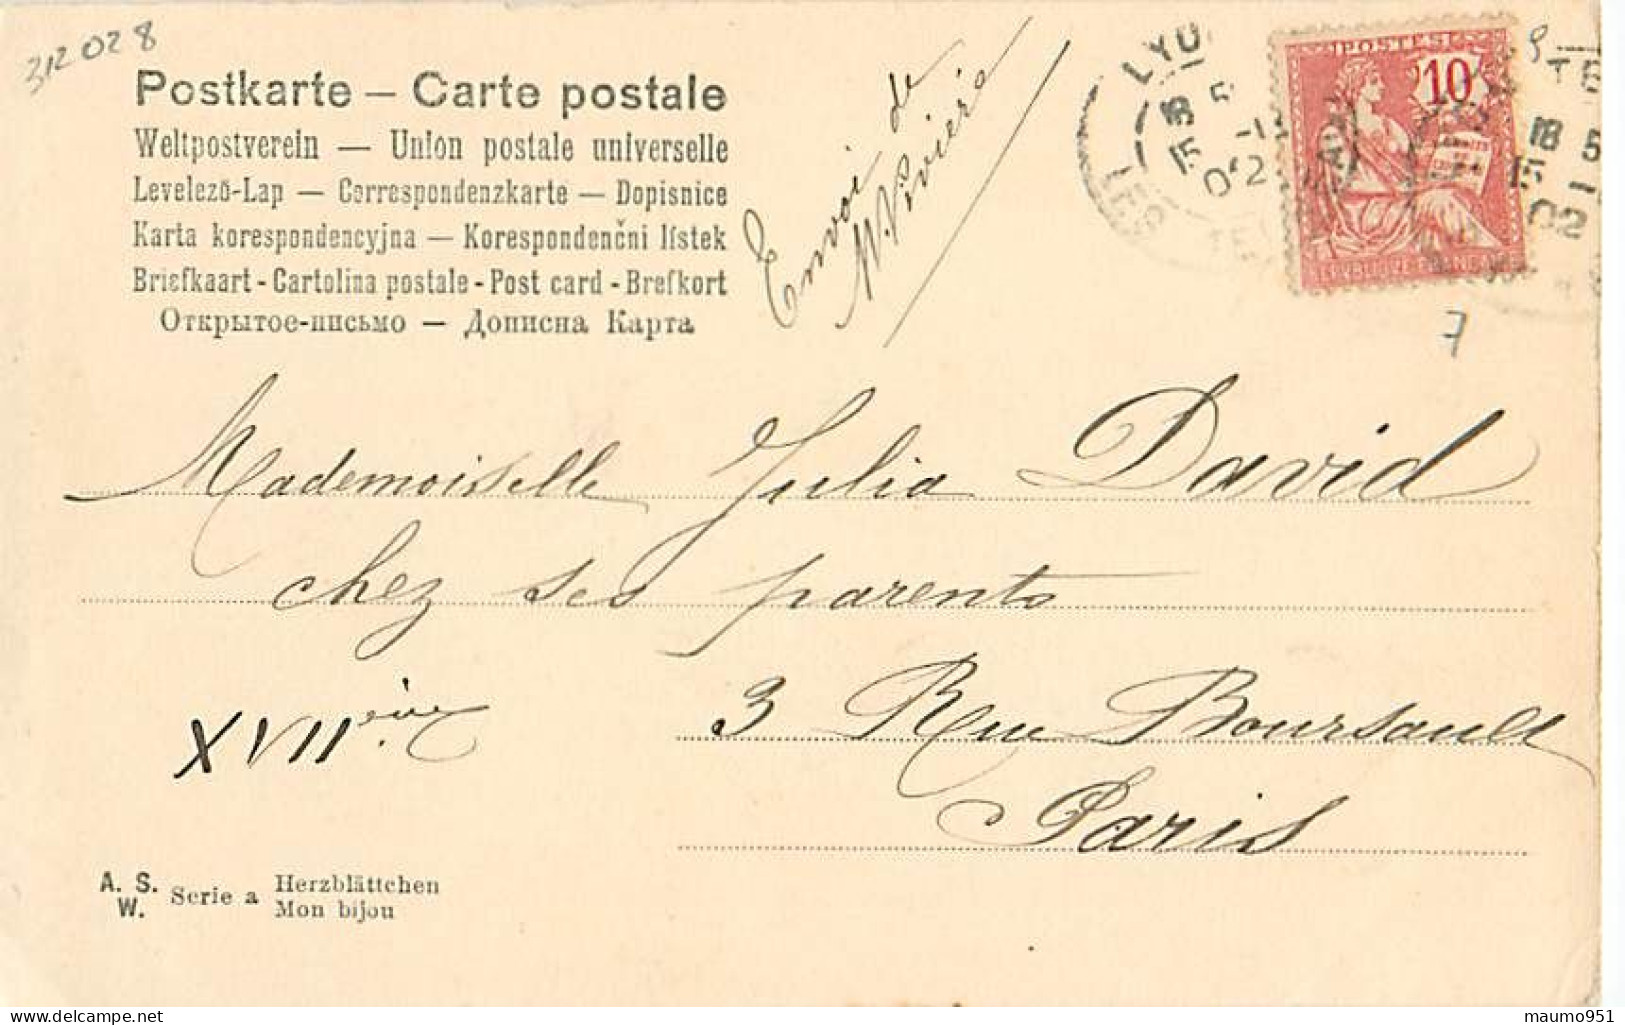 312028
Postkarte — Carte postale
Weltpostverein — Union postale universelle
Levelezō-Lap — Correspondenzkarte — Dopisnice
Karta korespondencyjna — Korespondenčni lístek
Briefkaart - Cartolina postale - Post card - Brefkort
Открытое-письмо — Дописна Карта
Envoi de
M. Rivière
POSTES
10
LYO
18 5
15 -1
02
18 5
15 -1
02
7
Mademoiselle Julia David
chez ses parents
3 Rue Boursault
XVIIème
Paris
A. S.
W.
Serie a
Herzblättchen
Mon bijou
maumo951